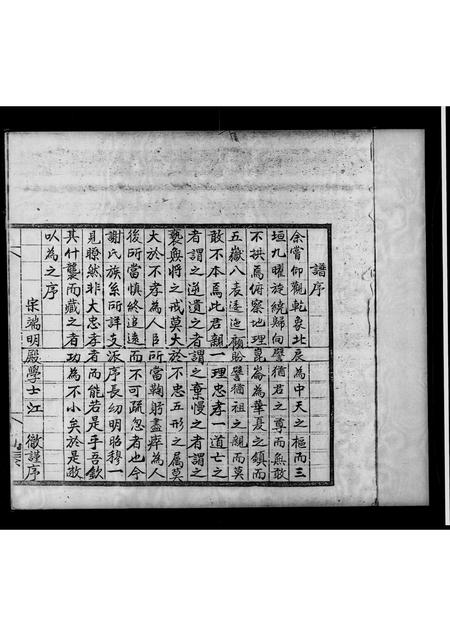 譜序
余嘗仰觀乾象北辰為中天之樞而三
垣九曜旋繞歸向譬猶君之尊而無敢
不拱焉俯察地理崑崙為華夏之鎮而
五嶽八表逶迤顧盼譬猶祖之親而莫
敢不本焉此君親一理忠孝一道亡之
者謂之逆遺之者謂之棄慢之者謂之
褻無將之戒莫大於不忠五刑之屬莫
大於不孝為人臣所當鞠躬盡瘁為人
後所當慎終追遠而不可疏忽者也今
謝氏族系所詳支派序長幼明昭穆一
見瞭然非大忠孝者而能若是乎吾欽
其什襲而藏之者功為不小矣於是敬
以為之序
宋端明殿學士江 徵謹序